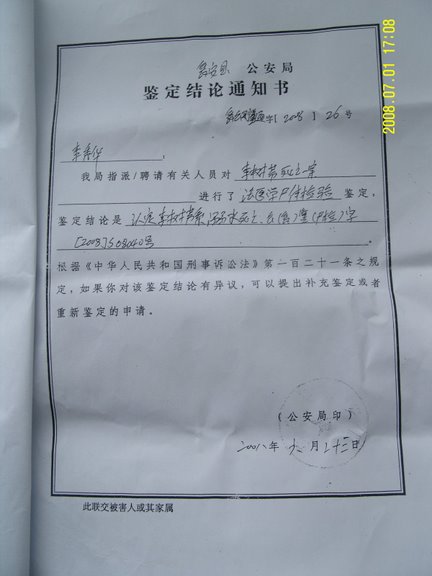 2008.07.01 17:08
瓮安县 公安局
鉴定结论通知书
字[2008]26号
李秀华:
我局指派/聘请有关人员对 李树芬死亡一案
进行了 法医学尸体检验 鉴定,
鉴定结论是 认定李树芬系溺水死亡 (尸检)字
[2008]508040号 。
根据《中华人民共和国刑事诉讼法》第一百二十一条之规
定,如果你对该鉴定结论有异议,可以提出补充鉴定或者
重新鉴定的申请。
(公安局印)
2008年 六 月 二十三 日
此联交被害人或其家属